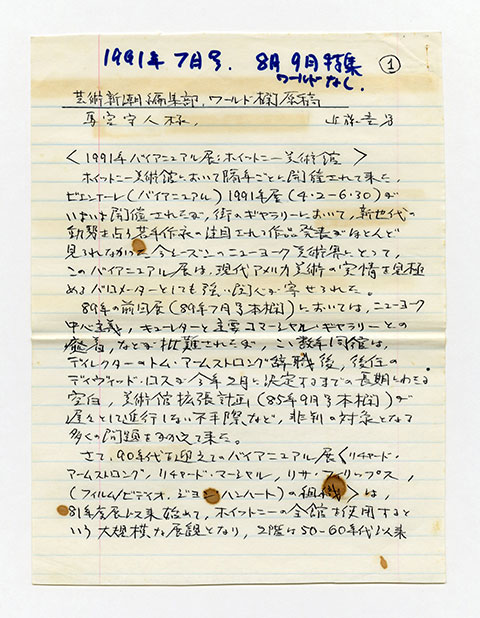 1991年 7月号. 8月 9月特集
ワールドなし.
①
芸術新潮編集部,ワールド欄原稿
馬宮守人様,
近藤竜男
<1991年バイアニュアル展:ホイットニー美術館>
ホイットニー美術館において隔年ごとに開催されて来た,
ビエンナーレ(バイアニュアル)1991年展(4・2-6・30)が
いよいよ開催されたが,街のギャラリーにおいて,新世代の
動勢を占う若手作家の注目される作品発表がほとんど
見られなかった今シーズンのニューヨーク美術界にとって,
このバイアニュアル展は,現代アメリカ美術の実情を見極
めるバロメーターとしても強い関心が寄せられた。
89年の前回展(89年7月号本欄)においては,ニューヨーク
中心主義,キューレターと主要コマーシャル・ギャラリーとの
癒着,などが批難されたが,ここ数年同館は,
ディレクターのトム・アームストロング辞職後,後任の
デイヴィッド・ロスが今年2月に決定するまでの長期にわたる
空白,美術館拡張計画(85年9月号本欄)が
遅々として進行しない不手際など,非判の対象となる
多くの問題をかかえて来た。
さて,90年代を迎えてのバイアニュアル展<リチャード・
アームストロング,リチャード・マーシャル,リサ・フィリップス,
(フィルム/ビデイオ・ジョン・ハンハート)の組織>は,
81年度展以来始めて,ホイットニーの全館を使用すると
いう大規模な展観となり,2階は50-60年代以来